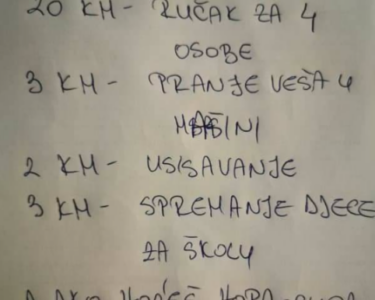 20 KM - RUČAK ZA 4
OSOBE
3 KM - PRANJE VEŠA U
MAŠINI
2 KM - USISAVANJE
3 KM - SPREMANJE DJECE
ZA ŠKOLU